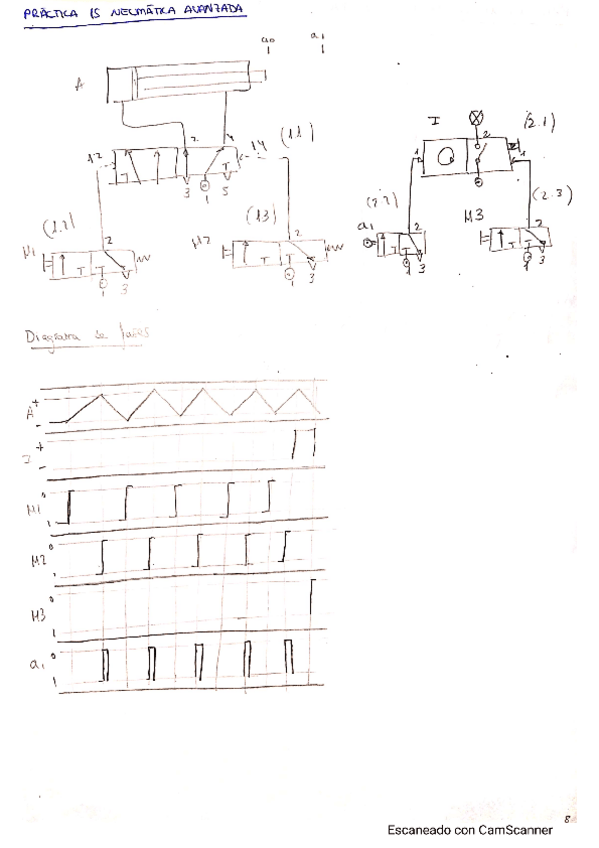 PRÁCTICA 15 NEUMÁTICA AVANZADA
a0 a1
A
I (2.1)
2
12 2 4 14 (1.1)
3 1 5
1 1
(1.2) (1.3) (2.2) (2.3)
a1 M3
M1 2 M2 2 2 2
1 3 1 3 1 3 1 3
Diagrama de fases
A + -
I + -
M1 0 1
M2 0 1
M3 0 1
a1 0 1
8
Escaneado con CamScanner